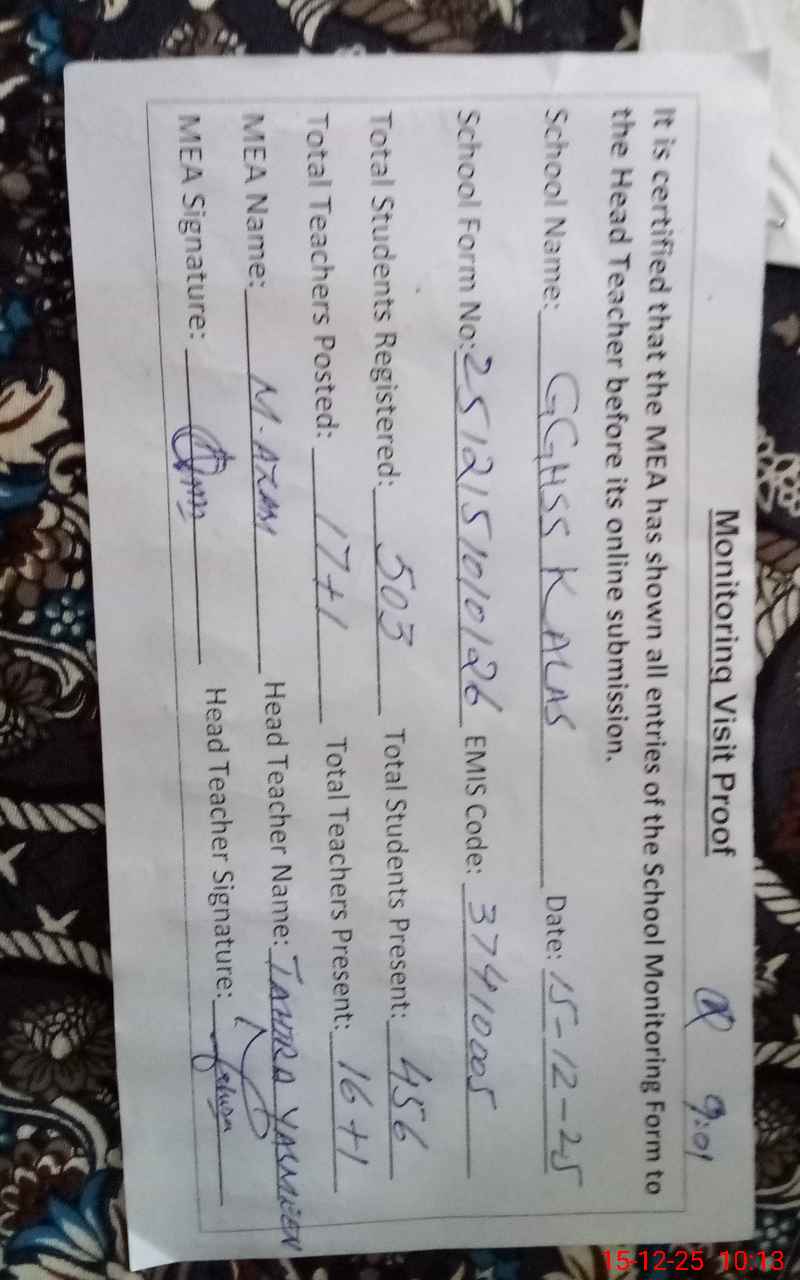 Monitoring Visit Proof
9:01
It is certified that the MEA has shown all entries of the School Monitoring Form to
the Head Teacher before its online submission.
School Name: GGHSS KALAS Date: 15-12-25
School Form No: 2512151010126 EMIS Code: 37410005
Total Students Registered: 503 Total Students Present: 456
Total Teachers Posted: 17+1 Total Teachers Present: 16+1
MEA Name: M. AZAM Head Teacher Name: TAHIRA YASMEEN
MEA Signature: Head Teacher Signature:
15-12-25 10:13